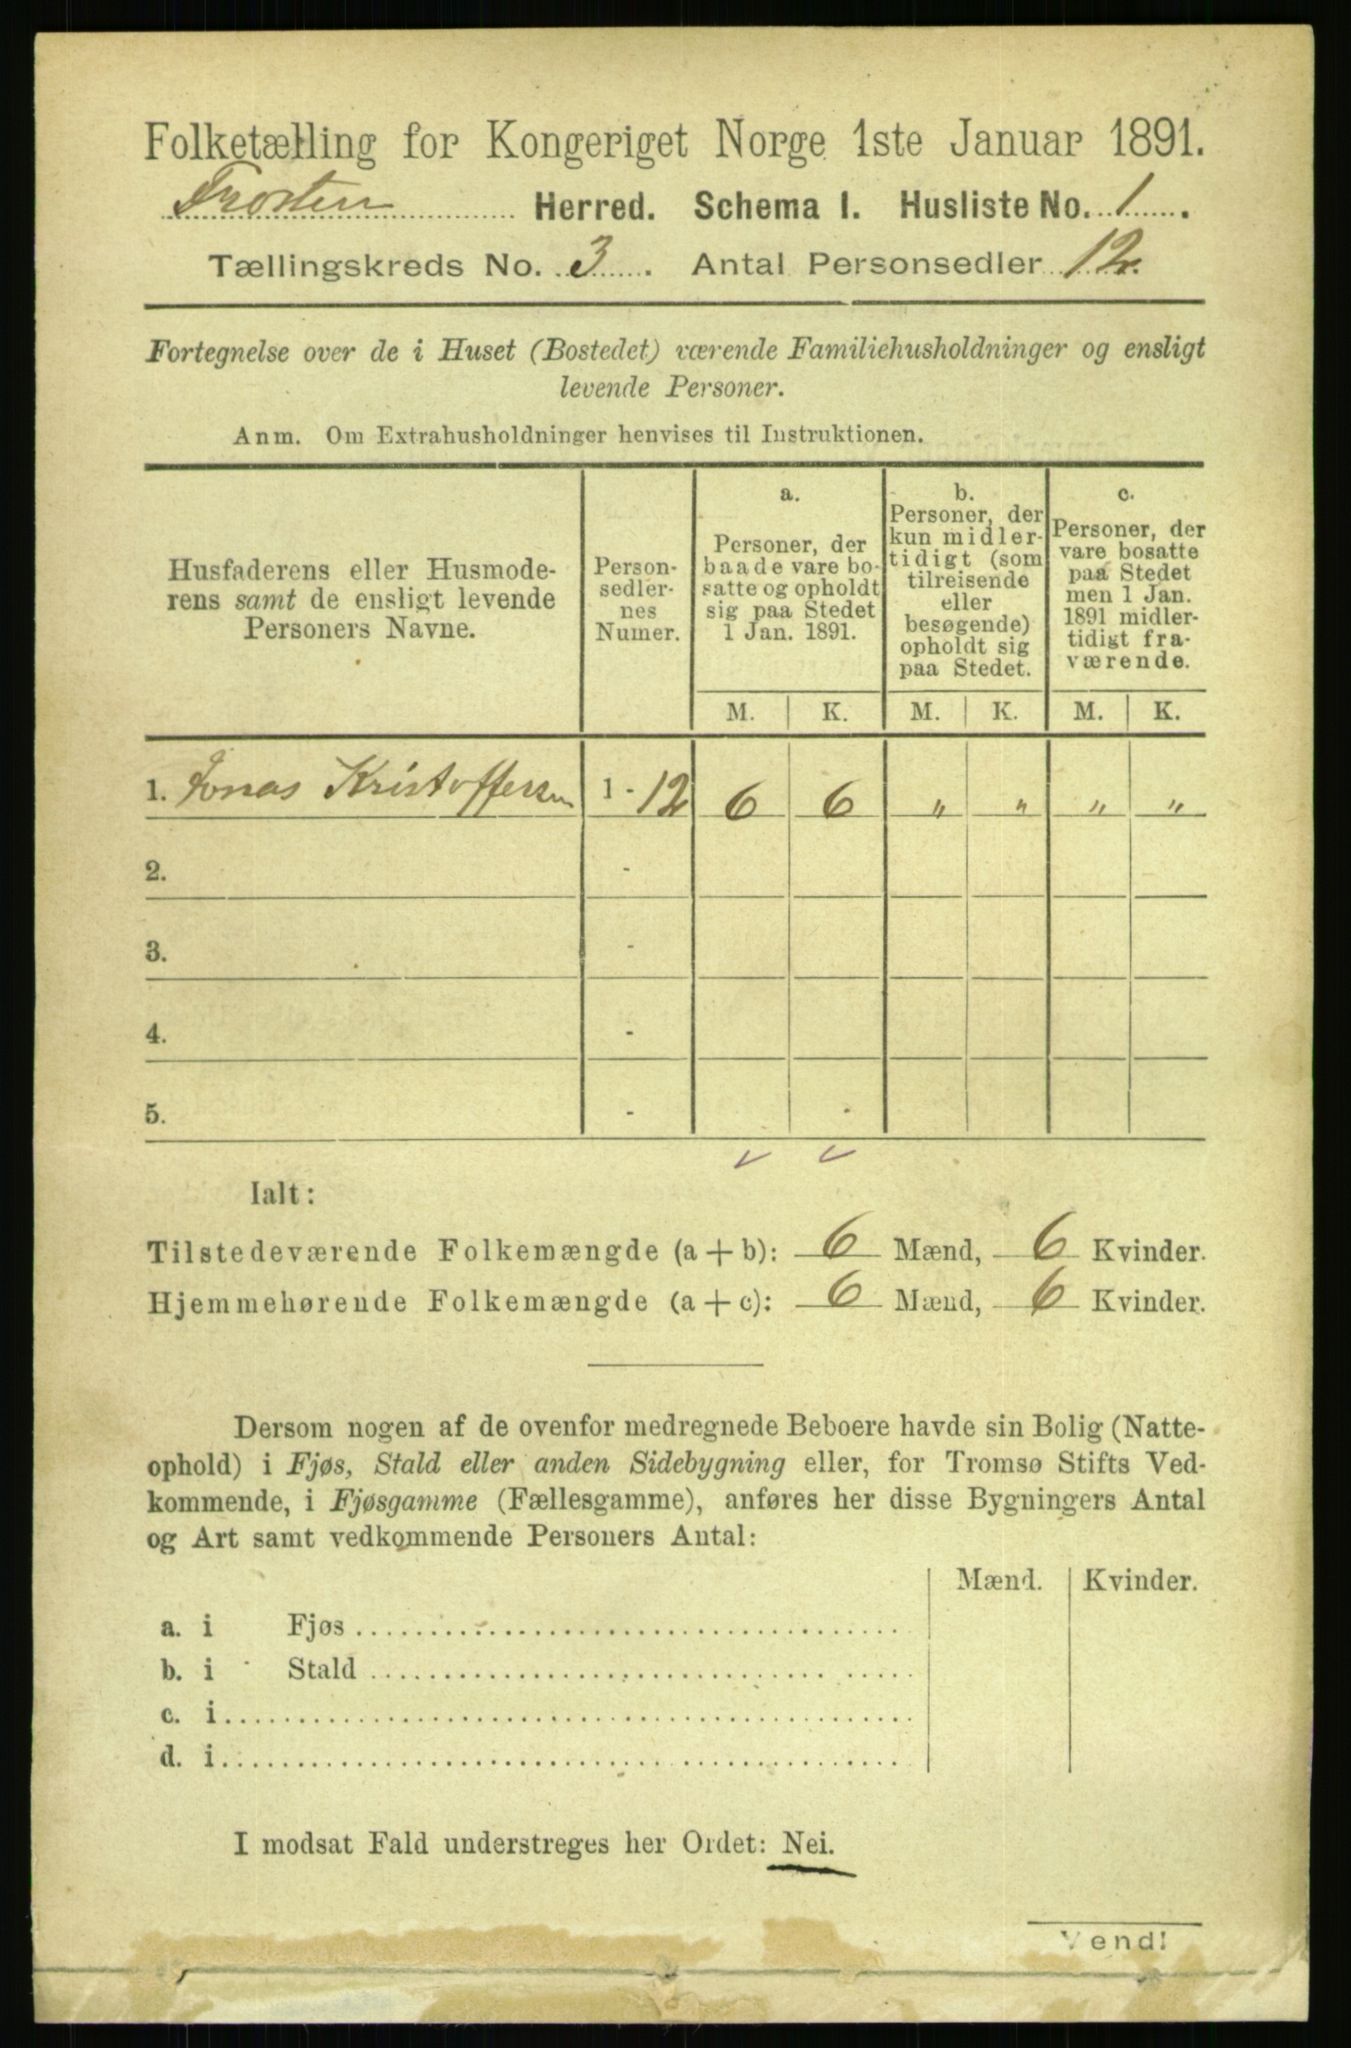 Folketælling for Kongeriget Norge 1ste Januar 1891.
Frosten Herred. Schema I. Husliste No. 1.
Tællingskreds No. 3. Antal Personsedler 12.
Fortegnelse over de i Huset (Bostedet) værende Familiehusholdninger og ensligt
levende Personer.
Anm. Om Extrahusholdninger henvises til Instruktionen.
Husfaderens eller Husmode-
rens samt de ensligt levende
Personers Navne.
Person-
sedler-
nes
Numer.
a.
Personer, der
baade vare bo-
satte og opholdt
sig paa Stedet
1 Jan. 1891.
b.
Personer, der
kun midler-
tidigt (som
tilreisende
eller
besøgende)
opholdt sig
paa Stedet.
c.
Personer, der
vare bosatte
paa Stedet
men 1 Jan.
1891 midler-
tidigt fra-
værende.
M. K. M. K. M. K.
1. Jonas Kristoffersen 1 - 12 6 6 " " " "
2. -
3. -
4. -
5. -
Ialt:
Tilstedeværende Folkemængde (a + b): 6 Mænd, 6 Kvinder.
Hjemmehørende Folkemængde (a + c): 6 Mænd, 6 Kvinder.
Dersom nogen af de ovenfor medregnede Beboere havde sin Bolig (Natte-
ophold) i Fjøs, Stald eller anden Sidebygning eller, for Tromsø Stifts Ved-
kommende, i Fjøsgamme (Fællesgamme), anføres her disse Bygningers Antal
og Art samt vedkommende Personers Antal:
Mænd. Kvinder.
a. i Fjøs
b. i Stald
c. i
d. i
I modsat Fald understreges her Ordet: Nei.
Vend!